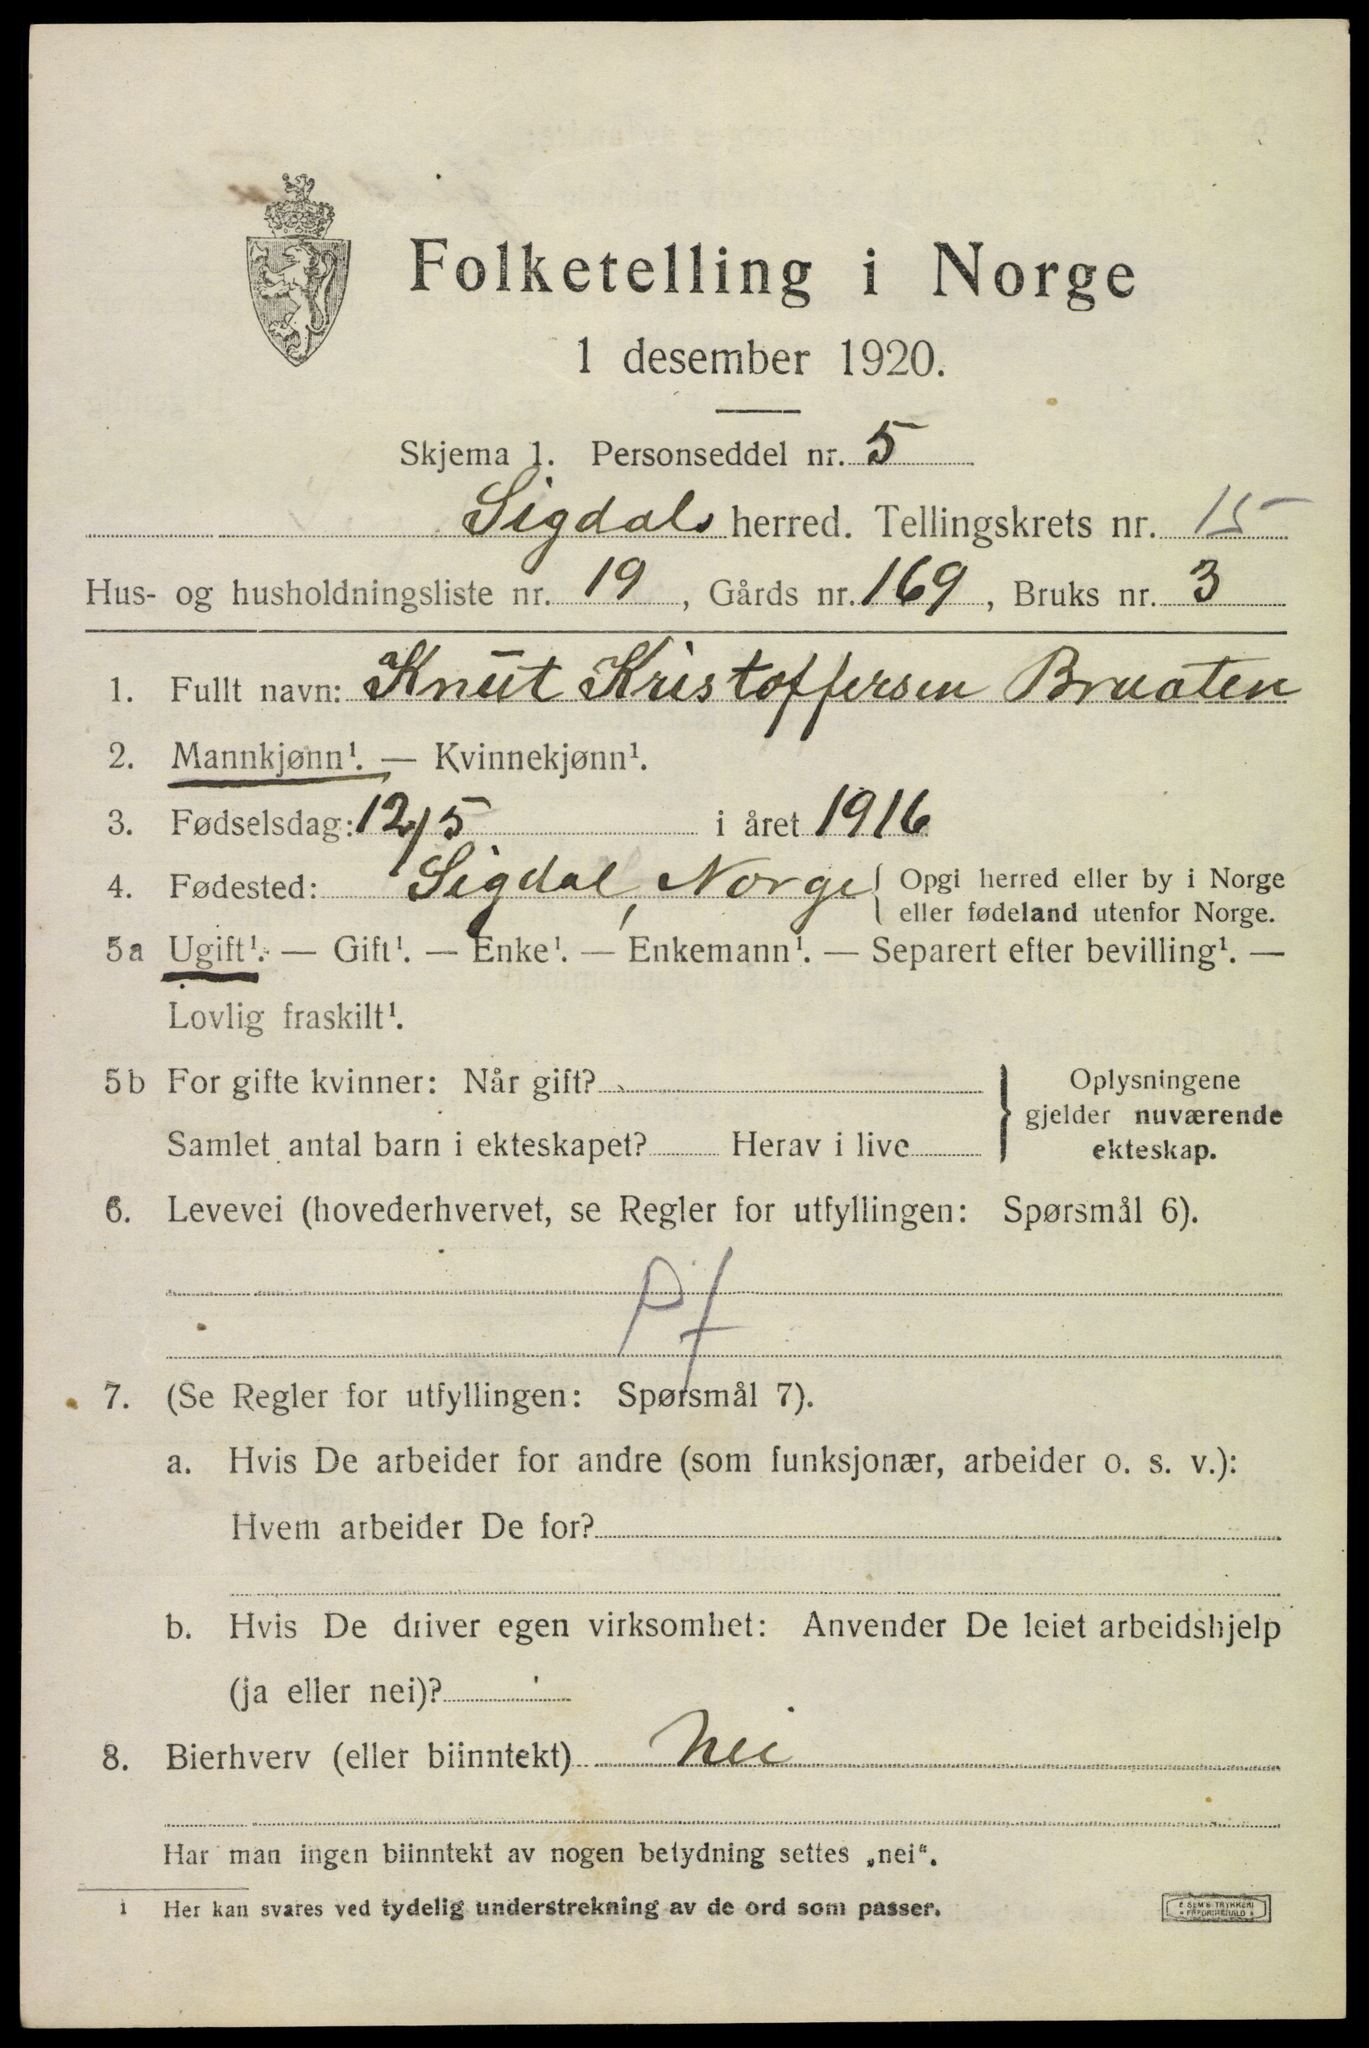 Folketelling i Norge
1 desember 1920.
Skjema 1. Personseddel nr. 5
Sigdals herred. Tellingskrets nr. 15
Hus- og husholdningsliste nr. 19, Gårds nr. 169, Bruks nr. 3
1. Fullt navn: Knut Kristoffersen Bruaten
2. Mannkjønn¹. — Kvinnekjønn¹.
3. Fødselsdag: 12/5 i året 1916
4. Fødested: Sigdal, Norge { Opgi herred eller by i Norge
eller fødeland utenfor Norge.
5a Ugift¹. — Gift¹. — Enke¹. — Enkemann¹. — Separert efter bevilling¹. —
Lovlig fraskilt¹.
5b For gifte kvinner: Når gift?
Samlet antal barn i ekteskapet? Herav i live
} Oplysningene
gjelder nuværende
ekteskap.
6. Levevei (hovederhvervet, se Regler for utfyllingen: Spørsmål 6).
pf
7. (Se Regler for utfyllingen: Spørsmål 7).
a. Hvis De arbeider for andre (som funksjonær, arbeider o. s. v.):
Hvem arbeider De for?
b. Hvis De driver egen virksomhet: Anvender De leiet arbeidshjelp
(ja eller nei)?
8. Bierhverv (eller biinntekt) Nei
Har man ingen biinntekt av nogen betydning settes „nei“.
1 Her kan svares ved tydelig understrekning av de ord som passer.
E SEM'S TRYKKERI
FREDRIKSHALD